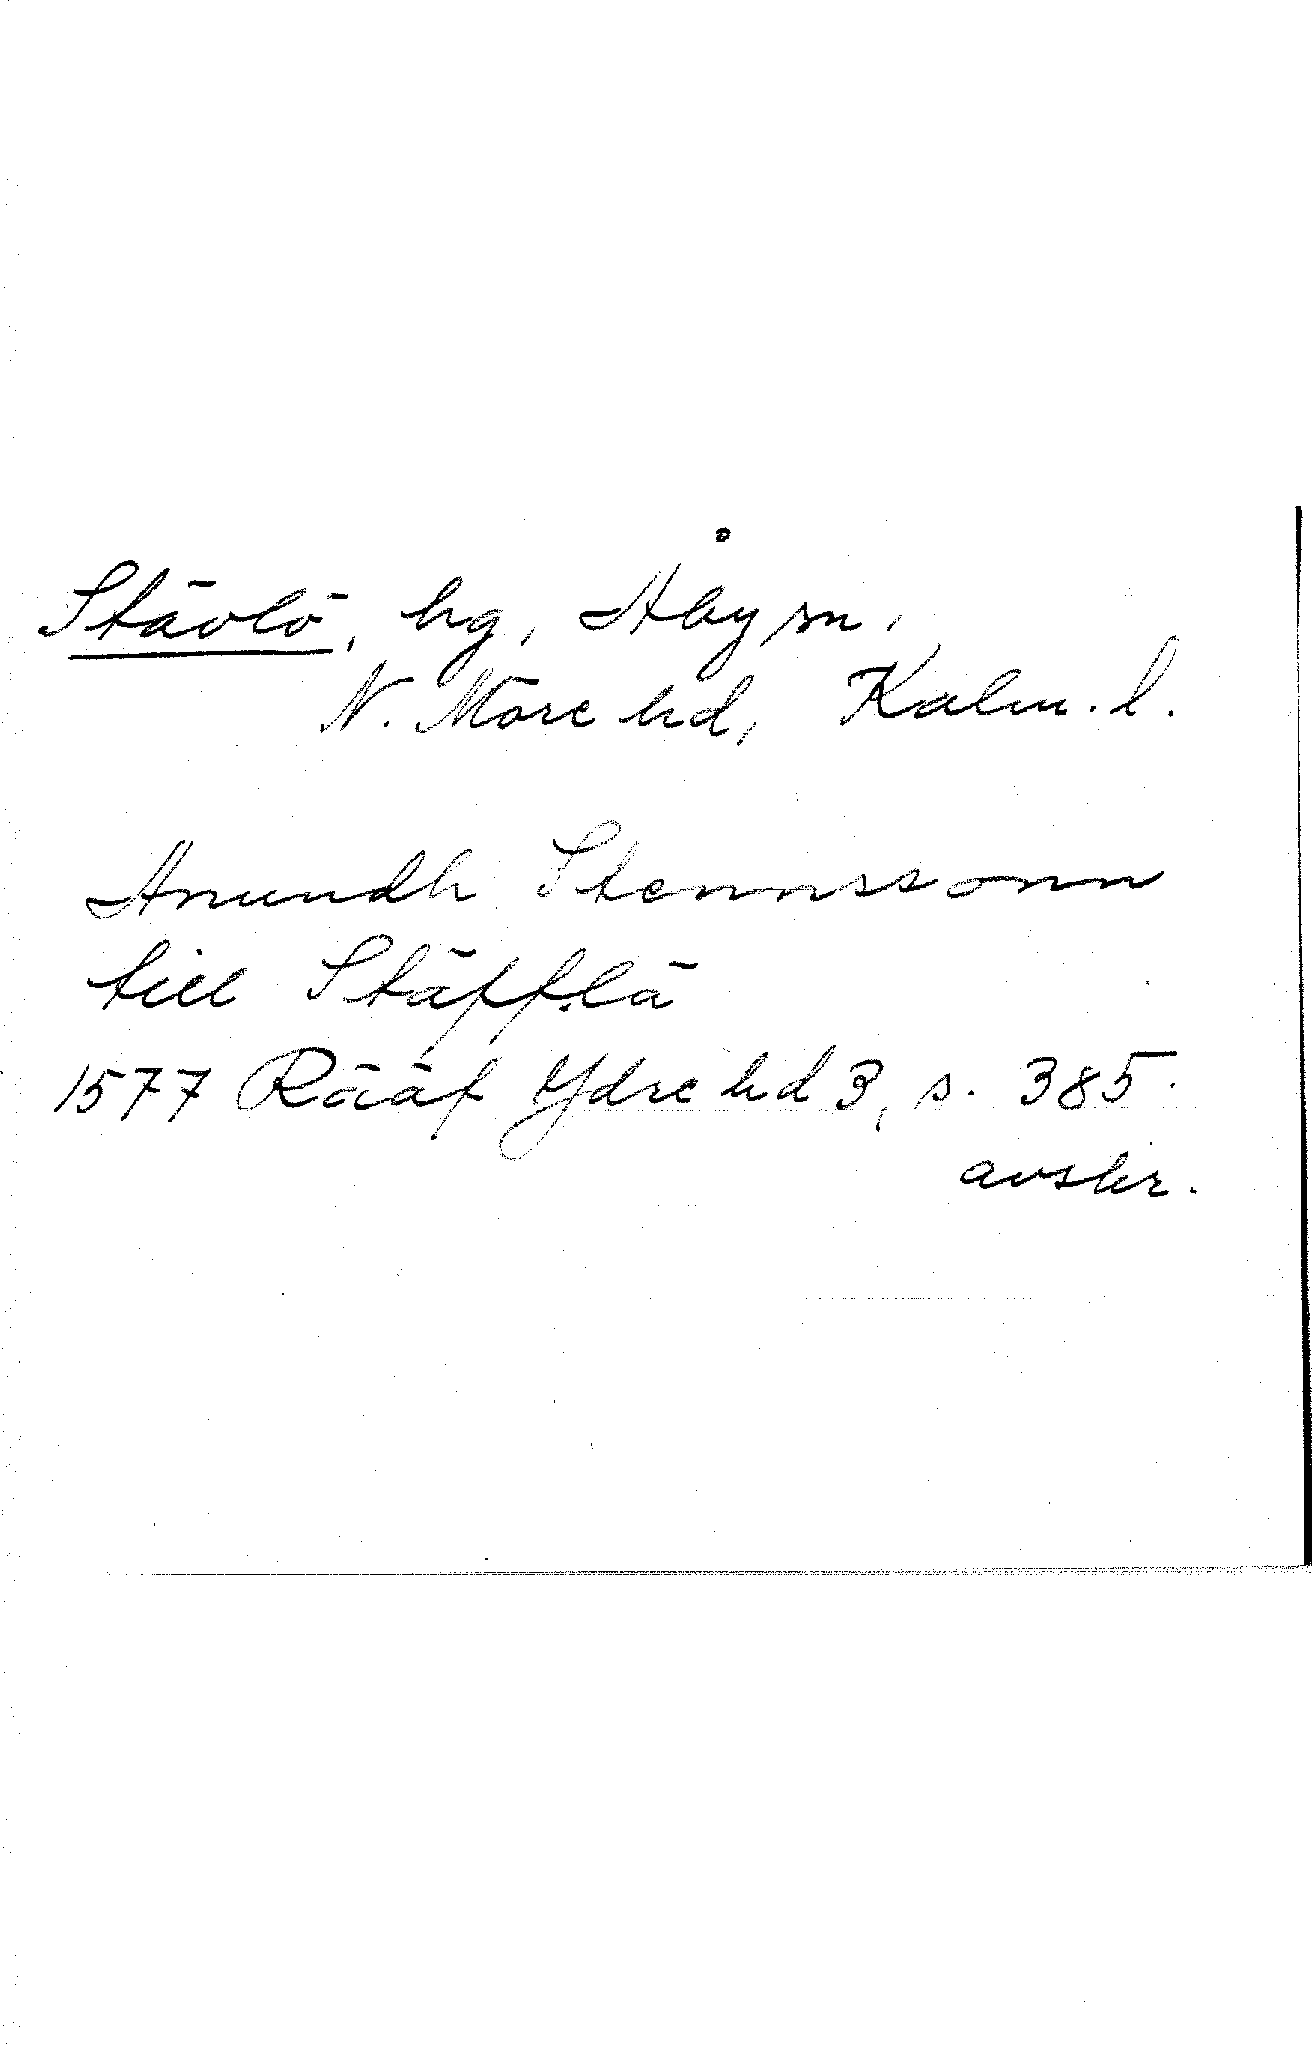 Stävlö, hg, Åby sn,
N. Möre hd, Kalm. l.
Anundh Stennssonn
till Stäfflä
1577 Rääf Ydre hd 3, s. 385.
avskr.